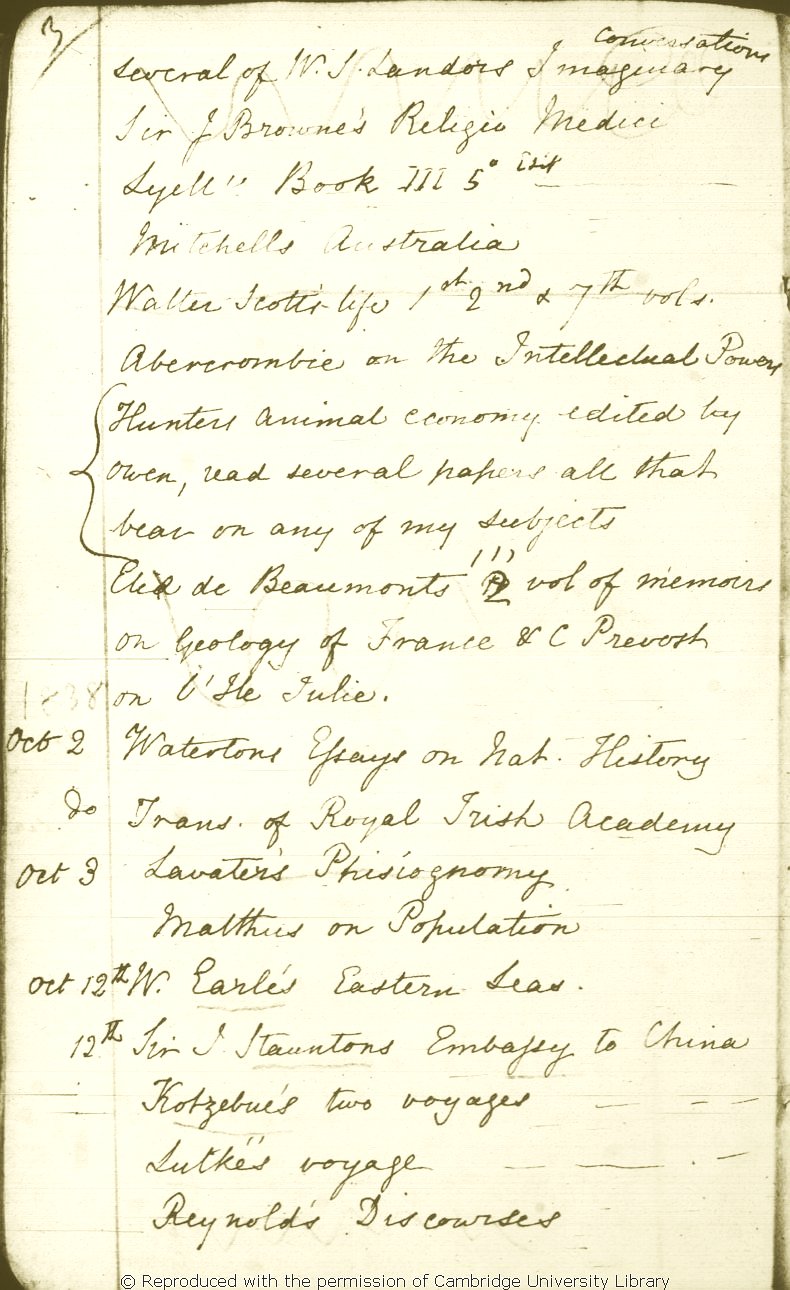 3
conversations
Several of W. S. Landors Imaginary
Sir J Browne's Religio Medici
Lyell's Book III 5° Edit
Mitchells Australia
Walter Scott's life 1st 2nd & 7th vols.
Abercrombie on the Intellectual Powers
Hunters animal economy edited by
Owen, read several papers all that
bear on any of my subjects
Elie de Beaumonts 2 vol of memoirs
on Geology of France & C Prevost
on l'Ile Julie.
1838
Oct 2 Watertons Essays on Nat. History
do Trans. of Royal Irish Academy
Oct 3 Lavater's Phisiognomy
Malthus on Population
Oct 12th W. Earle's Eastern Seas.
12th Sir J Stauntons Embassy to China
Kotzebue's two voyages
Lutké's voyage
Reynold's Discourses
© Reproduced with the permission of Cambridge University Library